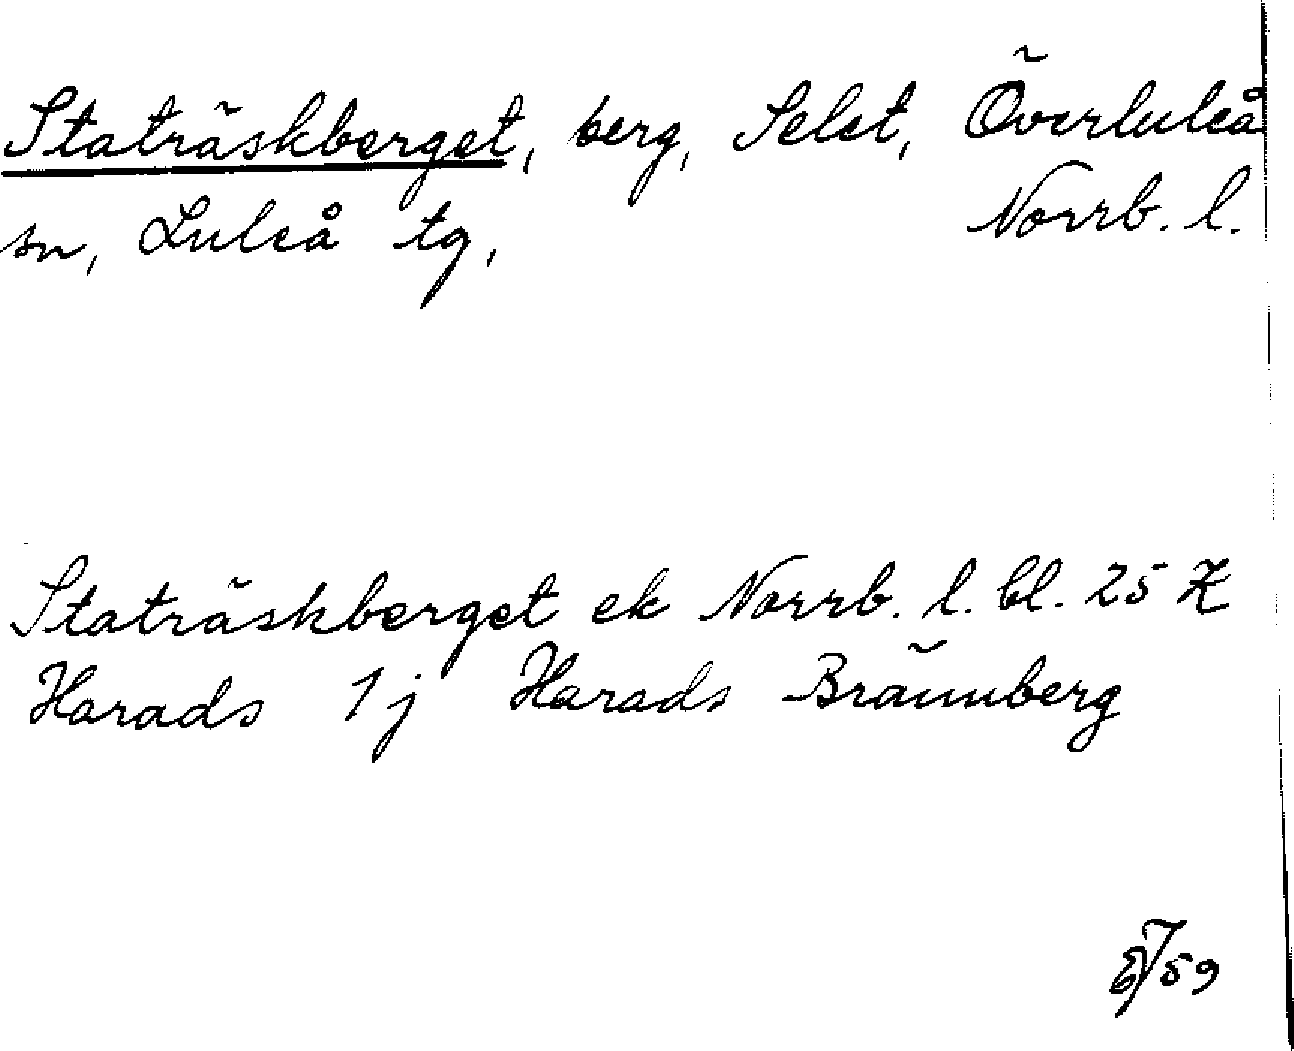 Staträskberget, berg, Selet, Överluleå
sn, Luleå tg, Norrb. l.
Staträskberget ek Norrb. l. bl. 25 K
Harads 1 j Harads Brännberg